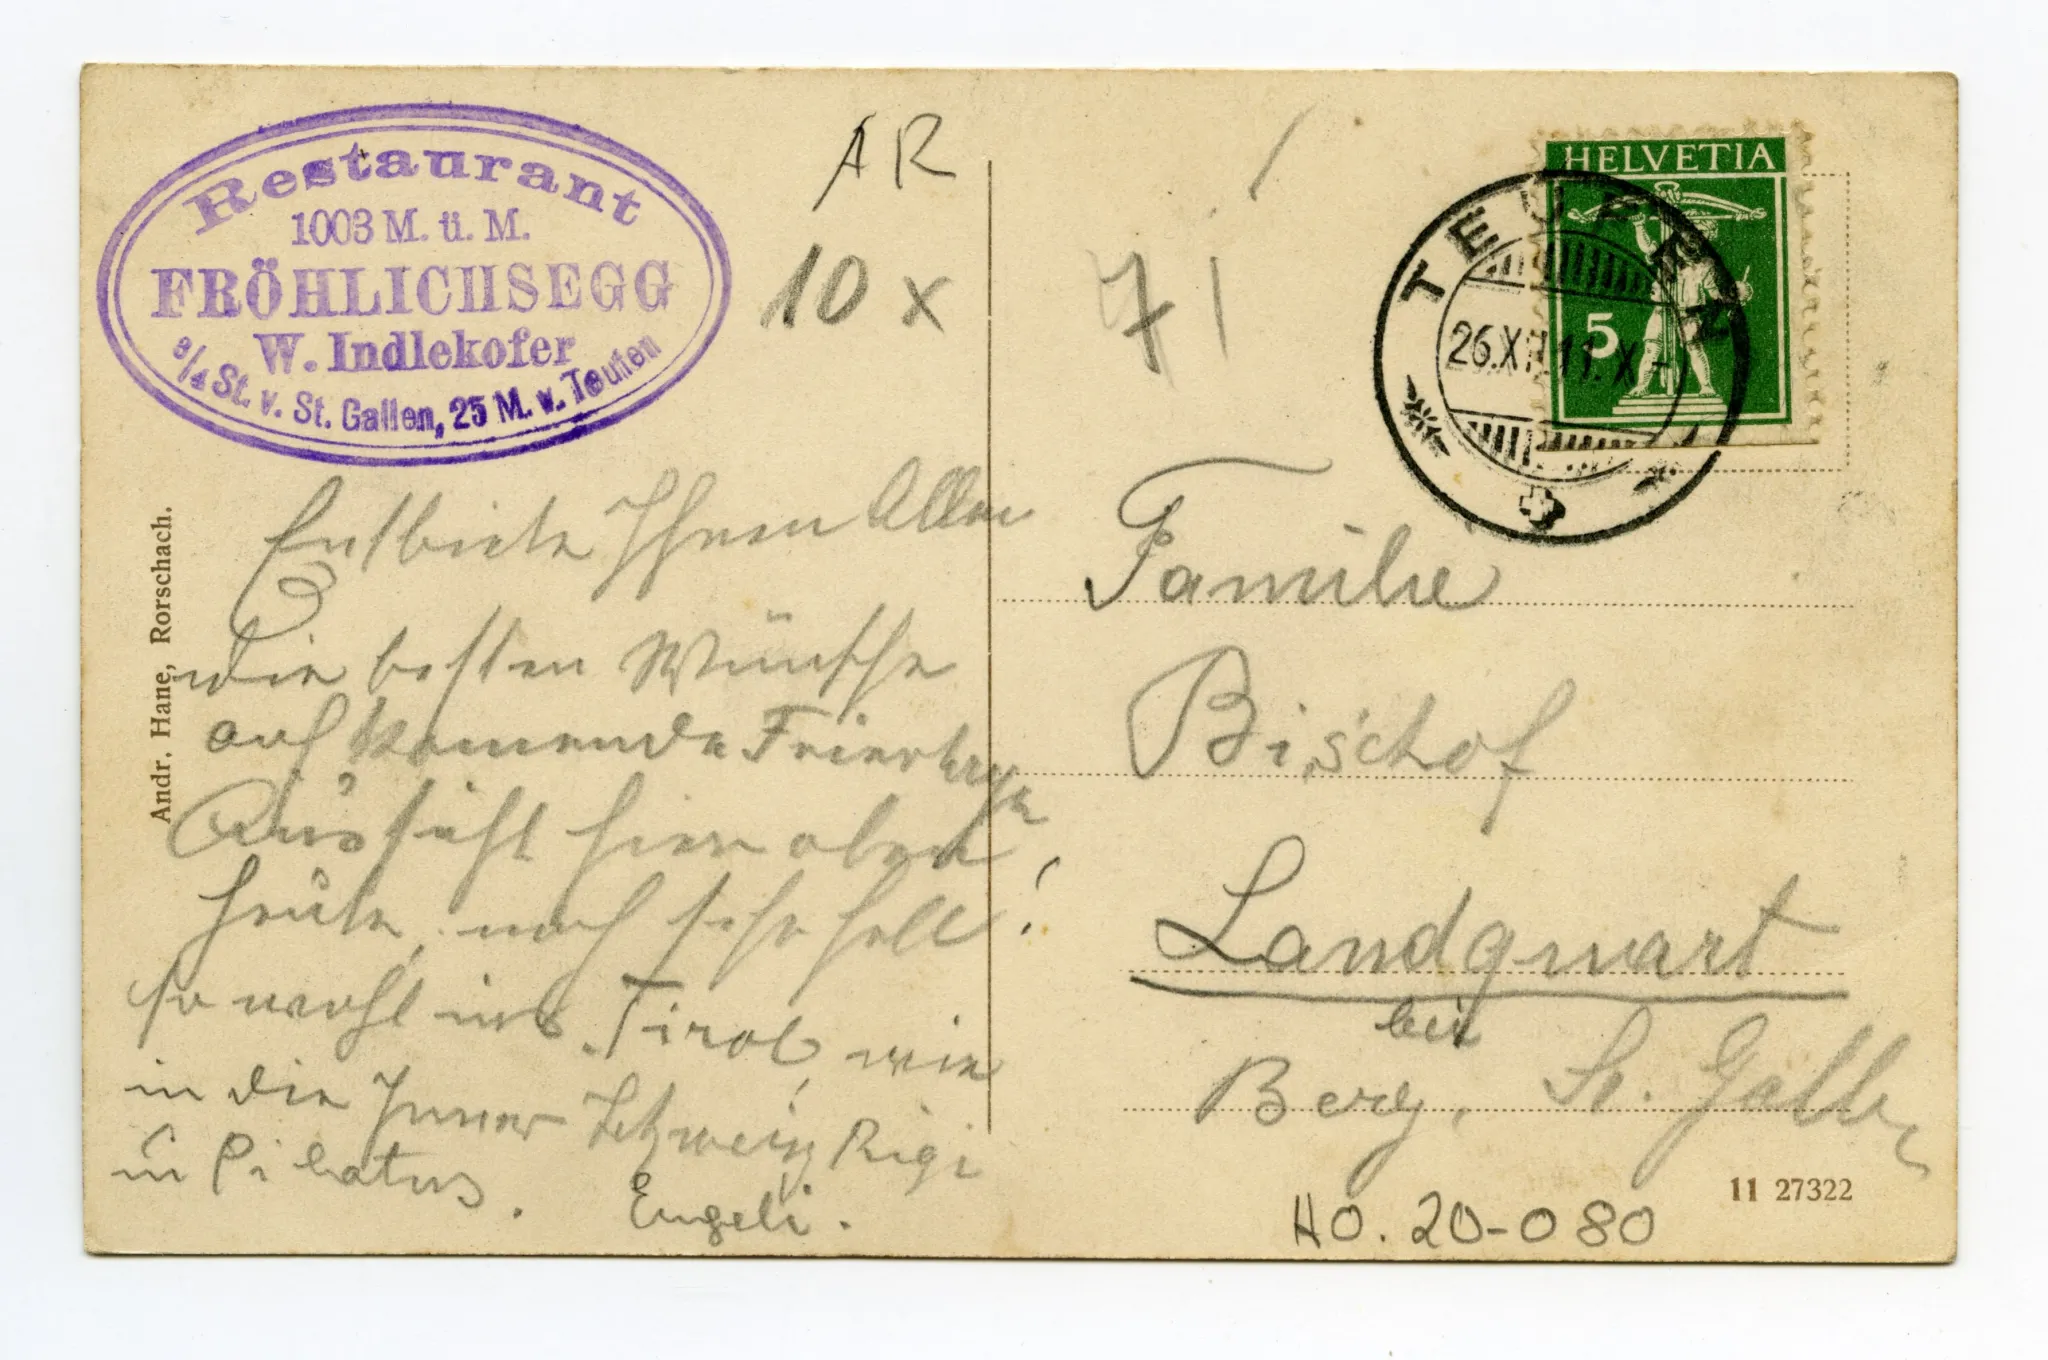 Restaurant
1003 M. ü. M.
FRÖHLICHSEGG
W. Indlekofer
3/4 St. v. St. Gallen, 25 M. v. Teufen
AR
10 x
71
HELVETIA
5
TEUFEN
26.XII.11.X-
Andr. Hane, Rorschach.
Entbiete Ihnen Allen
die besten Wünsche
auf kommende Feiertage
Aussicht hier oben
heute, noch sehr hell!
so wohl ins Tirol, wie
in die Inner Schweiz Rigi
u Pilatus. Engeli.
Familie
Bischof
Landquart
bei
Berg, St. Gallen
11 27322
HO. 20-080